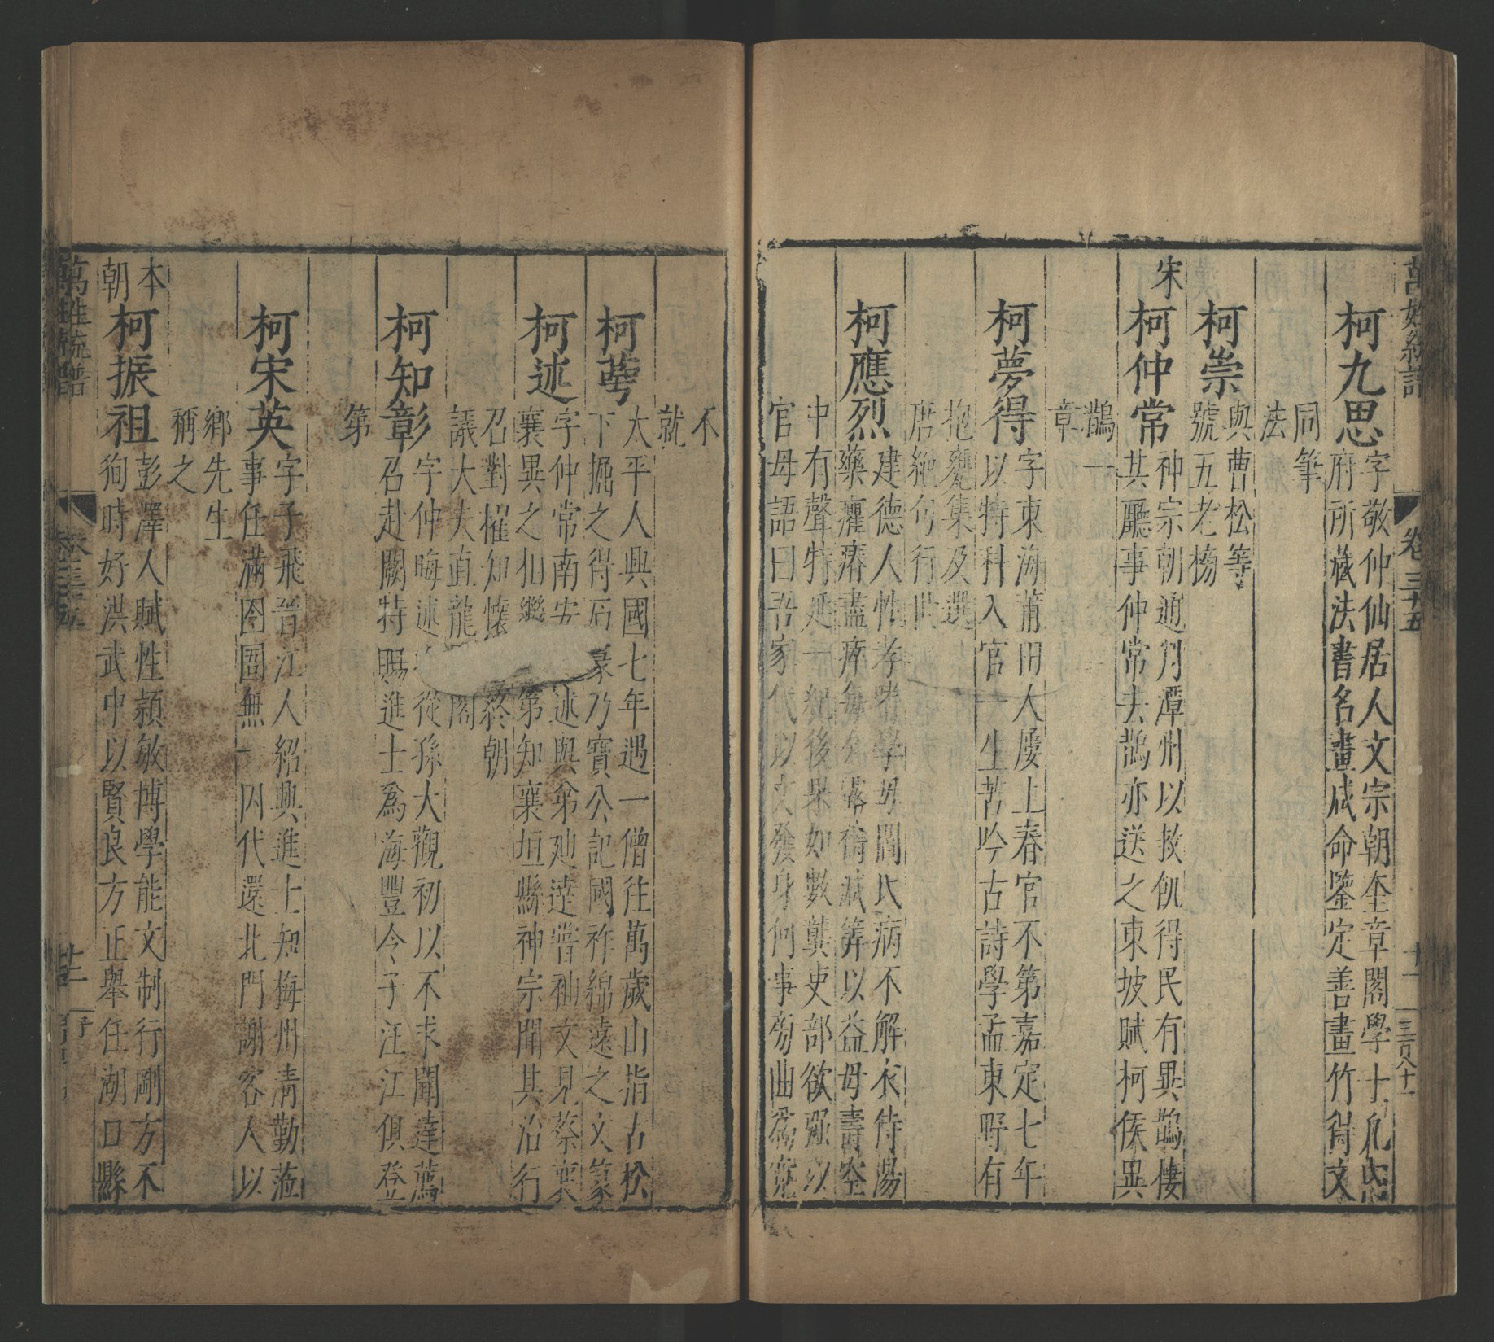 萬姓統譜 卷三十五
柯九思 字敬仲仙居人文宗朝奎章閣學士凡內
府所藏法書名畫咸命鑒定善畫竹得文
同筆
法
柯崇 與曹松等
號五老榜
宋 柯仲常 神宗朝通判潭州以救飢得民有異鵲棲
其廳事仲常去鵲亦送之東坡賦柯侯異
鵲一
章
柯夢得 字東海莆田人屢上春官不第嘉定七年
以特科入官一生苦吟古詩學孟東野有
抱甕集及選
唐絕句行世
柯應烈 建德人性孝嗜學母閻氏病不解衣侍湯
藥
減算以益母壽
中有聲特延一紀後果如數龔吏部欲強以
官母語曰吾家代以文發身何事旁曲為
不
就
柯萼 太平人興國七年遇一僧往萬歲山指古松
下掘之得石篆乃寶公記國祚綿遠之文
柯述 字仲常南安 述與弟迪遊嘗袖文見蔡襄
襄異之 第知襄垣縣神宗聞其治行
召對擢知懷 終朝
議大夫直龍 閣
柯知彰 字仲晦述 從孫大觀初以不求聞達薦
召赴闕特賜進士為海豐令子汪江俱登
第
柯宋英 字子飛晉江人紹興進士知梅州清勤蒞
事任滿囹圄無一囚代還北門謝客人以
鄉先生
稱之
本朝 柯振祖 彭澤人賦性穎敏博學能文制行剛方不
徇時好洪武中以賢良方正舉任湖口縣
萬姓統譜